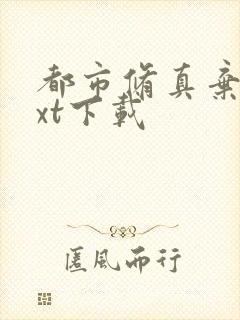 都市脩真棄
xt下載
匿風而行